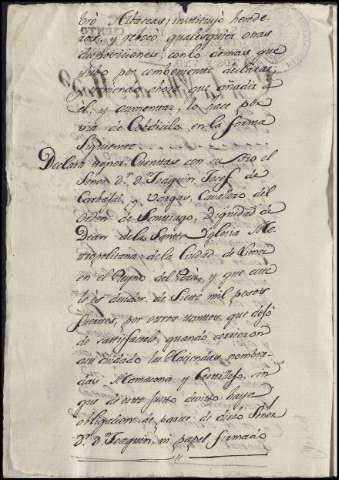 bró Albaceas, instituyó herede
ros, y revocó qualesquiera otras
disposiciones, con lo demas que
tuvo por combeniente declarar,
y teniendo cosas que añadir á
él, y aumentar, lo hace por
via de Codicilo en la forma
Siguiente
Declaró tener Cuentas con su Sobo el
Señor Dn. Dn. Joaquin Josef de
Carbajal, y Vargas, Cavallero del
Orden de Santiago, Dignidad de
Dean de la Santa Yglesia Me
tropolitana de la Ciudad de Lima
en el Reyno del Perú, y que este
le es deudor de Siete mil pesos
fuertes, por otros tantos, que dejó
de satisfacerle, quando corrieron
á su cuidado las Haciendas nombra
das Mamacona y Castillejo, sin
que de este justo devito haya
obligacion de parte de dicho Señor
Dn. Dn. Joaquin, ni papel firmado